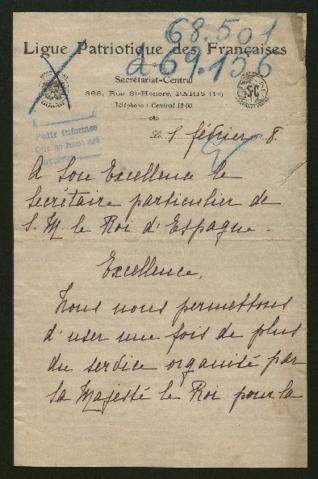 68.501
Ligue Patriotique des Françaises
à 69.156
Secrétariat-Central
368, Rue St-Honoré, PARIS (1er)
Téléphone : Central 12-60
Petit Informe
Que se haga
1 février 8.
A Son Excellence le
Secrétaire particulier de
S. M. le Roi d'Espagne.
Excellence,
Nous nous permettons
d'user une fois de plus
du service organisé par
sa Majesté le Roi pour la